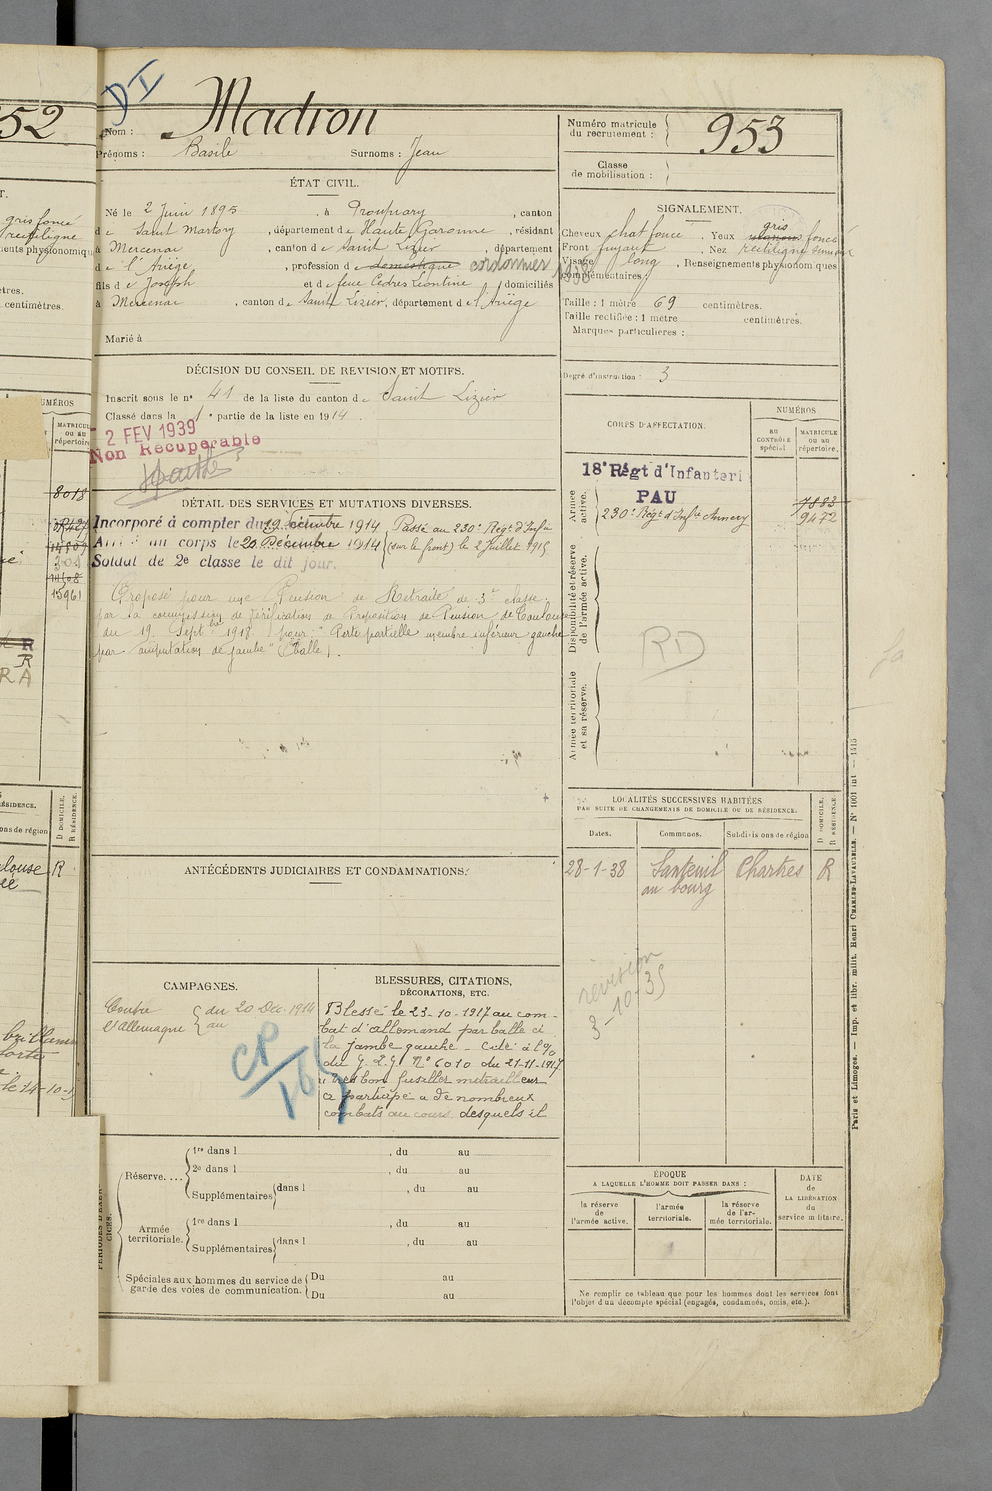 952
DI
Nom : Madron
Prénoms : Basile Surnoms : Jean
Numéro matricule du recrutement : 953
Classe de mobilisation :
ÉTAT CIVIL.
Né le 2 Juin 1895, à Proupiary, canton
de Saint Martory, département de Haute Garonne, résidant
à Mercenac, canton de Saint Lizier, département
de l'Ariège, profession de domestique cordonnier 1938
fils de Joseph et de feue Cedres Léontine domiciliés
à Mercenac, canton de Saint Lizier, département de l'Ariège
Marié à
SIGNALEMENT.
Cheveux chat foncé. Yeux gris foncé
Front fuyant. Nez rectiligne sinueux
Visage long. Renseignements physionomiques
complémentaires :
Taille : 1 mètre 69 centimètres.
Taille rectifiée : 1 mètre centimètres.
Marques particulières :
Degré d'instruction : 3
DÉCISION DU CONSEIL DE REVISION ET MOTIFS.
Inscrit sous le n° 41 de la liste du canton de Saint Lizier
Classé dans la 1e partie de la liste en 1914.
2 FEV 1939
Non Récupérable
DÉTAIL DES SERVICES ET MUTATIONS DIVERSES.
Incorporé à compter du 19 Décembre 1914 Passé au 230e Régt d'Infie
Arrivé au corps le 20 Décembre 1914 (sur le front) le 2 Juillet 1915
Soldat de 2e classe le dit jour.
Proposé pour une Pension de Retraite de 3e classe.
par la commission de Vérification de Proposition de Pension de Toulouse
du 19 Septbre 1918. pour "Perte partielle membre inférieur gauche
par amputation de jambe" (Balle).
CORPS D'AFFECTATION.
NUMÉROS
au contrôle spécial
MATRICULE ou au répertoire.
Armée active.
18e Régt d'Infanterie
PAU
7883
230e Régt d'Infie Annecy 9472
Disponibilité et réserve de l'armée active.
RD
Armée territoriale et sa réserve.
LOCALITÉS SUCCESSIVES HABITÉES
PAR SUITE DE CHANGEMENTS DE DOMICILE OU DE RÉSIDENCE.
Dates. Communes. Subdivisions de région D DOMICILE. R RÉSIDENCE.
28-1-38 Santeuil au bourg Chartres R
révision
3-10-35
ANTÉCÉDENTS JUDICIAIRES ET CONDAMNATIONS.
CAMPAGNES.
Contre l'Allemagne { du 20 Déc. 1914
au
CP
BLESSURES, CITATIONS,
DÉCORATIONS, ETC.
Blessé le 23-10-1917 au com-
bat d'allemand par balle à
la jambe gauche - Cité à l'%
du G.Q.G. N° 6010 du 21-11-1917
très bon fusilier mitrailleur
a participé à de nombreux
combats au cours desquels il
PÉRIODES D'EXERCICES.
Réserve....
1re dans l , du au
2e dans l , du au
Supplémentaires dans l , du au
Armée territoriale.
1re dans l , du au
Supplémentaires dans l , du au
Spéciales aux hommes du service de garde des voies de communication.
Du au
Du au
ÉPOQUE
A LAQUELLE L'HOMME DOIT PASSER DANS :
la réserve de l'armée active.
l'armée territoriale.
la réserve de l'armée territoriale.
DATE de LA LIBÉRATION du service militaire.
Ne remplir ce tableau que pour les hommes dont les services font
l'objet d'un décompte spécial (engagés, condamnés, omis, etc.).
Paris et Limoges. — Imp. et libr. milit. Henri CHARLES-LAVAUZELLE. — N° 1001 int — 1415